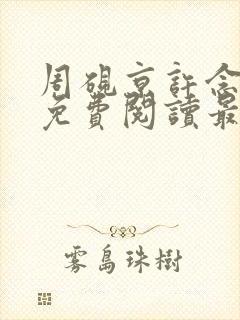 周硯京許念
免費閱讀最
雾島珠樹